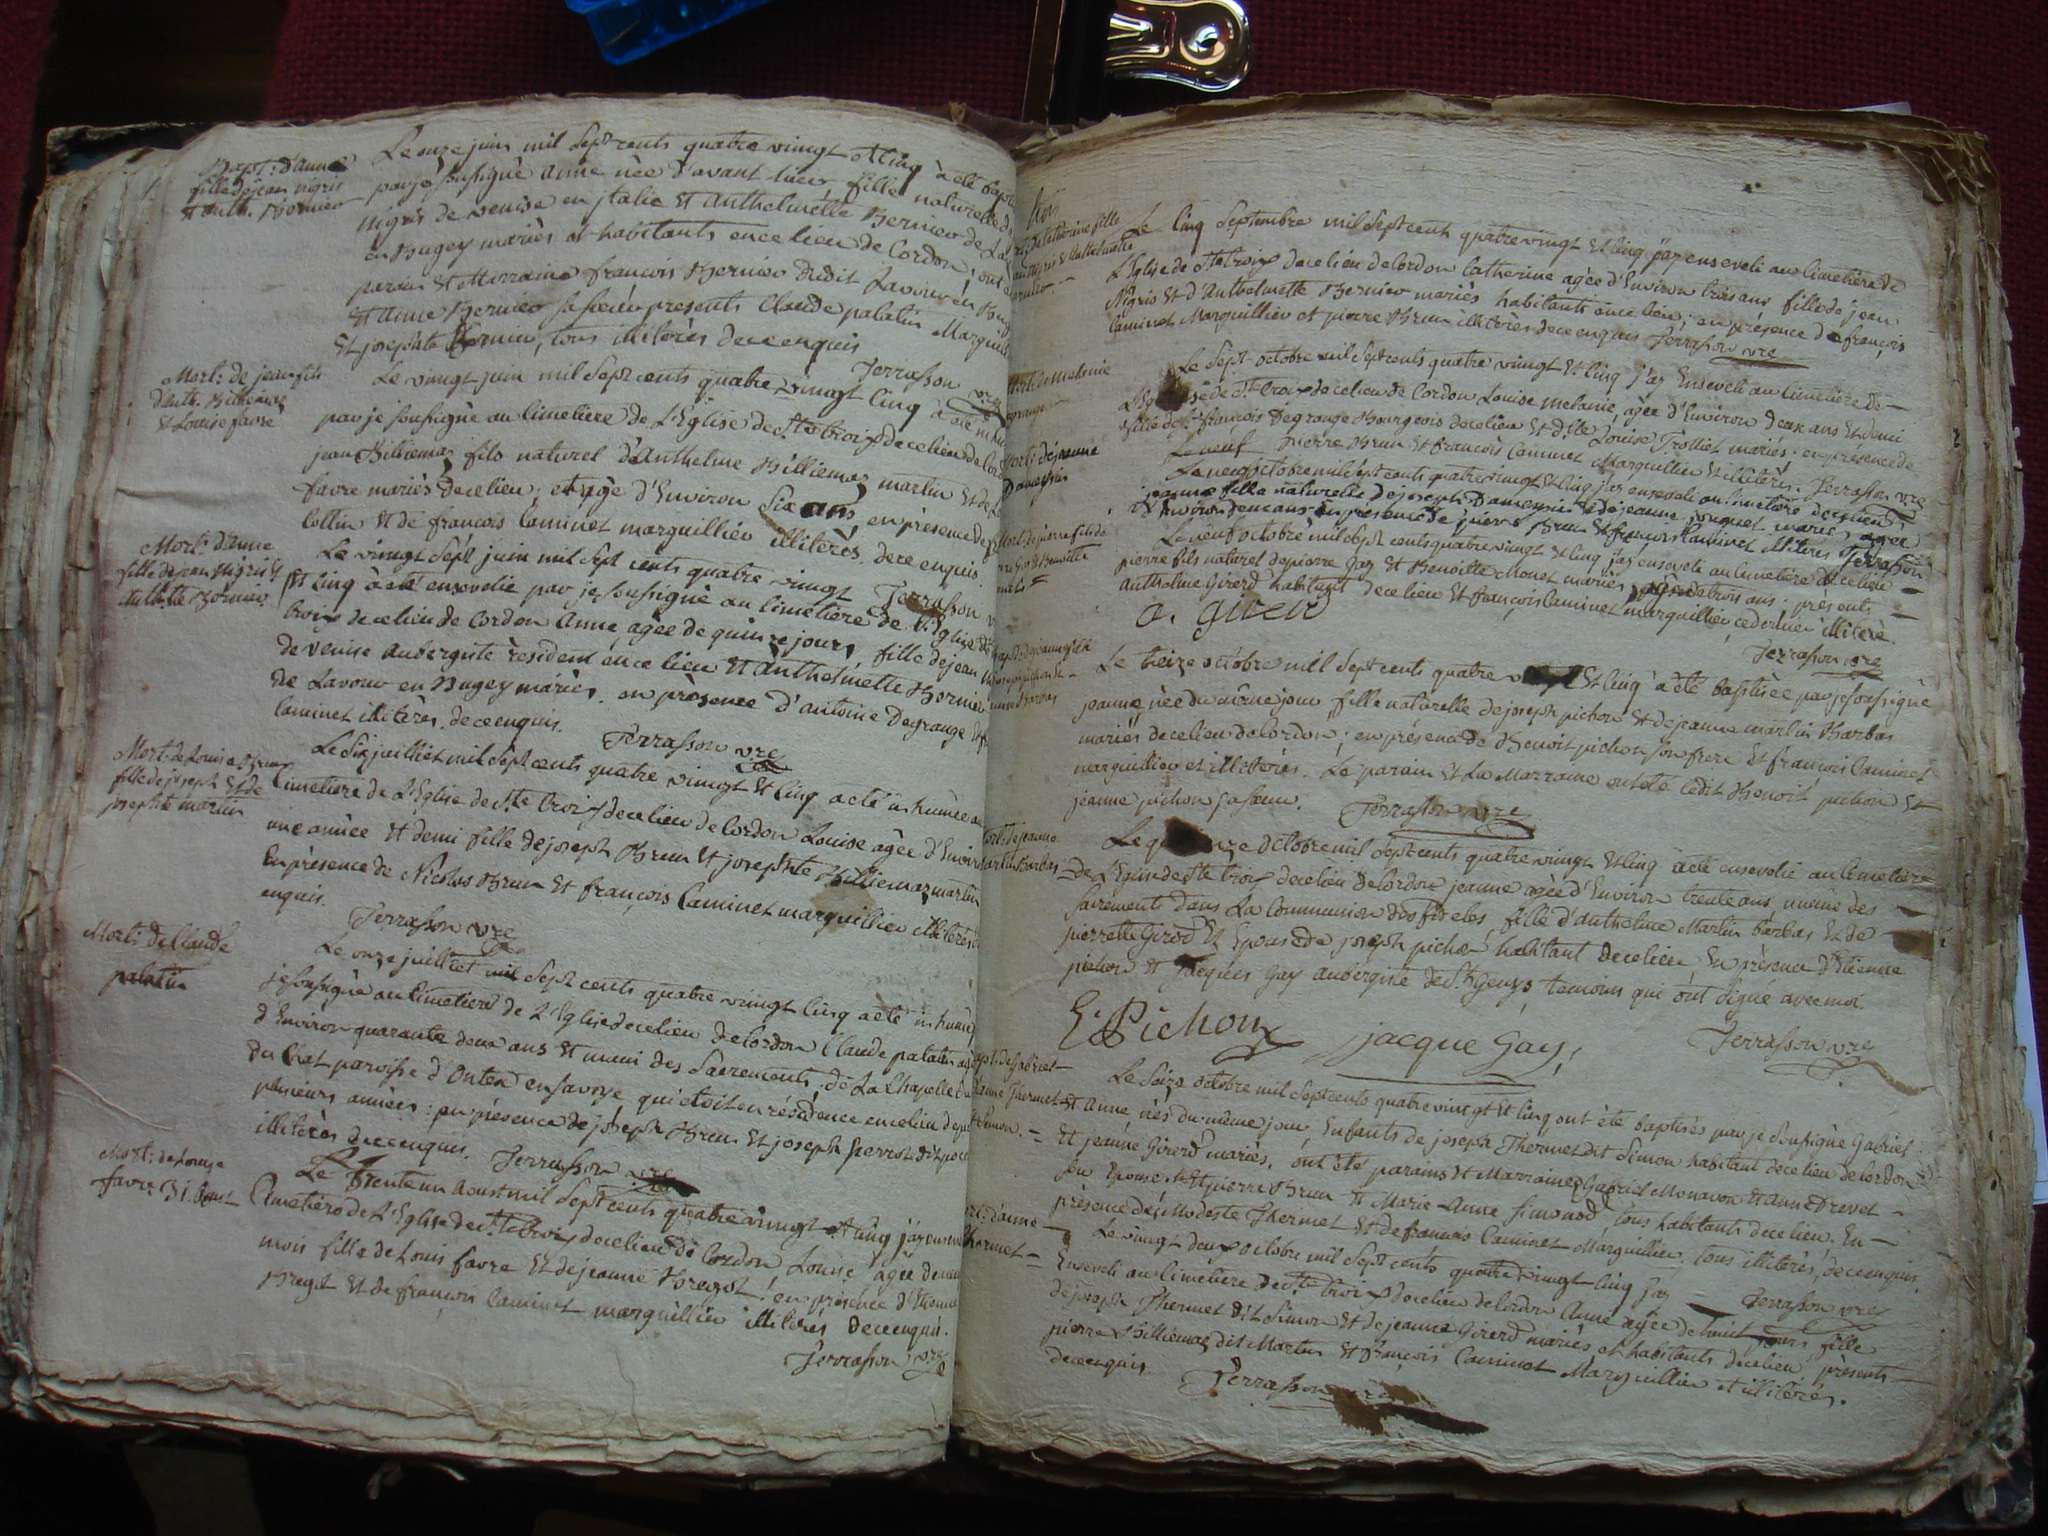 Bapt: d'anne
fille de jean nigris
et Anth. Bernier
Le onze juin mil Sept cents quatre vingt et cinq à été bapt
par jé soussigné anne née d'avant hier fille naturelle d
nigris de venise en jtalie et anthelmette Bernier de La
en Bugey mariés et habitants en ce lieu de Cordon; ont é
parain et Marraine françois Bernier dudit Lavour en Bug
et anne Bernier sa sœur presents Claude palatin Marguil
et josephte Bernier, tous illiterés de ce enquis
Terrasson vre
Mort: de jean fils
d'Anth. Billiemaz
et Louise favre
Le vingt juin mil Sept cents quatre vingt cinq à été inhu
par je soussigné au Cimetiere de L'Eglise de Ste Croix de ce lieu de Cor
jean Billiemaz fils naturel d'Anthelme Billiemaz martin et de L
favre mariés de ce lieu; et agé d'Environ Six ans, en présence de
Collin et de francois Caminet marguillier illiterés de ce enquis.
Terrasson v
Mort: d'anne
fille de jean Nigris et
Anth.tte Bernier
Le vingt Sept juin mil Sept cents quatre vingt
et cinq à été ensevelie par je soussigné au Cimetière de L'Eglise de
Croix de ce lieu de Cordon Anne, agée de quinze jours, fille de jean
de venise aubergiste résident en ce lieu et Anthelmette Bernier
de Lavour en Bugey mariés. en présence d'antoine Degrange et f
Caminet illiterés. de ce enquis.
Terrasson vre
Mort: de Louise Brun
fille de joseph et de
josephte martin
Le Six juilliet mil Sept cents quatre vingt et Cinq a été inhumée au
Cimetiere de L'Eglise de Ste Croix de ce lieu de Cordon Louise agée d'Environ
une année et demi fille de joseph Brun et josephte Billiemaz martin
En présence de Nicolas Brun et françois Caminet marguillier illiterés d
enquis.
Terrasson vre
Mort: de Claude
palatin
Le onze juilliet mil Sept cents quatre vingt Cinq a été inhumé
je soussigné au Cimetiere de L'Eglise de ce lieu de Cordon Claude palatin agé
d'Environ quarante deux ans et muni des Sacrements. de La Chapelle du
du Chat paroisse d'Ontex en Savoye qui étoit en résidence en ce lieu depui
plusieurs années: en présence de joseph Brun et joseph perrot dit
illiterés de ce enquis. Terrasson vre
Mort: de Louise
favre 31 Aoust
Le Trente un Aoust mil Sept cents quatre vingt et Cinq j'ay enseve
Cimetiere de L'Eglise de Ste Croix de ce lieu de Cordon Louise, agée de
mois fille de Louis favre et de jeanne Bregot. en présence d'Etienne
Bregot et de françois Caminet marguillier illiterés de ce enquis.
Terrasson vre
Catherine fille
Nigris & Anthelmette
Le Cinq Septembre mil Sept cents quatre vingt et Cinq j'ay enseveli au Cimetière de
L'Eglise de Ste Croix de ce lieu de Cordon Catherine agée d'Environ trois ans fille de jean
Nigris et d'Anthelmette Bernier mariés habitants en ce lieu; en présence de françois
Caminet Marguillier et pierre Brun illiterés de ce enquis Terrasson vre
Melanie
Le Sept octobre mil Sept cents quatre vingt et Cinq j'ay Enseveli au Cimetière de
L'Eglise de Ste Croix de ce lieu de Cordon Louise Melanie, agée d'Environ deux ans et demi
fille de Sr françois Degrange Bourgeois de ce lieu et d.lle Louise Trolliet mariés: en présence de
Le neuf pierre Brun et francois Caminet Marguillier et illiterés. Terrasson vre
Mort: de jeanne
Le neuf octobre mil Sept cents quatre vingt et Cinq j'ay enseveli au Cimetière de ce lieu
jeanne fille naturelle de joseph et de jeanne mariés, agée
d'Environ deux ans en présence de pierre Brun et francois Caminet illiterés Terrasson
Mort de pierre fils de
Le neuf octobre mil Sept cents quatre vingt et Cinq j'ay enseveli au Cimetière de ce lieu
pierre fils naturel de pierre Gay et Benoitte Monet mariés, agé de trois ans: présents
Anthelme Girerd habitant de ce lieu et françois Caminet marguillier, ce dernier illiteré.
a. girerd
Terrasson vre
Le treize octobre mil Sept cents quatre vingt et Cinq à été baptisée par je soussigné
jeanne, née du même jour, fille naturelle de joseph pichon et de jeanne martin Barbas
mariés de ce lieu de Cordon; en présence de Benoit pichon son frere et francois Caminet
marguillier et illiterés. Le parain et La Marraine ont été Ledit Benoit pichon et
jeanne pichon sa sœur. Terrasson vre
Mort: de jeanne
Martin Barbas
Le quinze octobre mil Sept cents quatre vingt et Cinq à été ensevelie au Cimetière
de L'Eglise de Ste Croix de ce lieu de Cordon jeanne agée d'Environ trente ans, munie des
Sacrements dans La Communion des fideles, fille d'anthelme Martin barbas et de
pierrette Girod et Epouse de joseph pichon habitant de ce lieu, En présence d'Etienne
pichon et jacques Gay aubergiste de St Genys, temoins qui ont signé avec moi.
E. Pichon jacque Gay, Terrasson vre
Le Seize octobre mil Sept cents quatre vingt et Cinq ont été baptisés par je soussigné Gabriel
et Anne nés du même jour, Enfants de joseph Thermet dit Simon habitant de ce lieu de Cordon
et jeanne Girerd mariés, ont été parains et Marraines Gabriel Monavon et Anne Drevet
son Epouse, et pierre Brun et Marie-Anne Simonod, tous habitants de ce lieu. En
présence de Modeste Thermet et de francois Caminet Marguillier, tous illiterés, de ce enquis.
Terrasson vre
Mort: d'anne
Thermet
Le vingt deux octobre mil Sept cents quatre vingt Cinq j'ay
Enseveli au Cimetiere de Ste Croix de ce lieu de Cordon Anne agée de huit jours, fille
de joseph Thermet dit Simon et de jeanne Girerd mariés et habitants de ce lieu, présents
pierre Billiemaz dit Martin et François Caminet Marguillier et illiterés.
de ce enquis. Terrasson vre